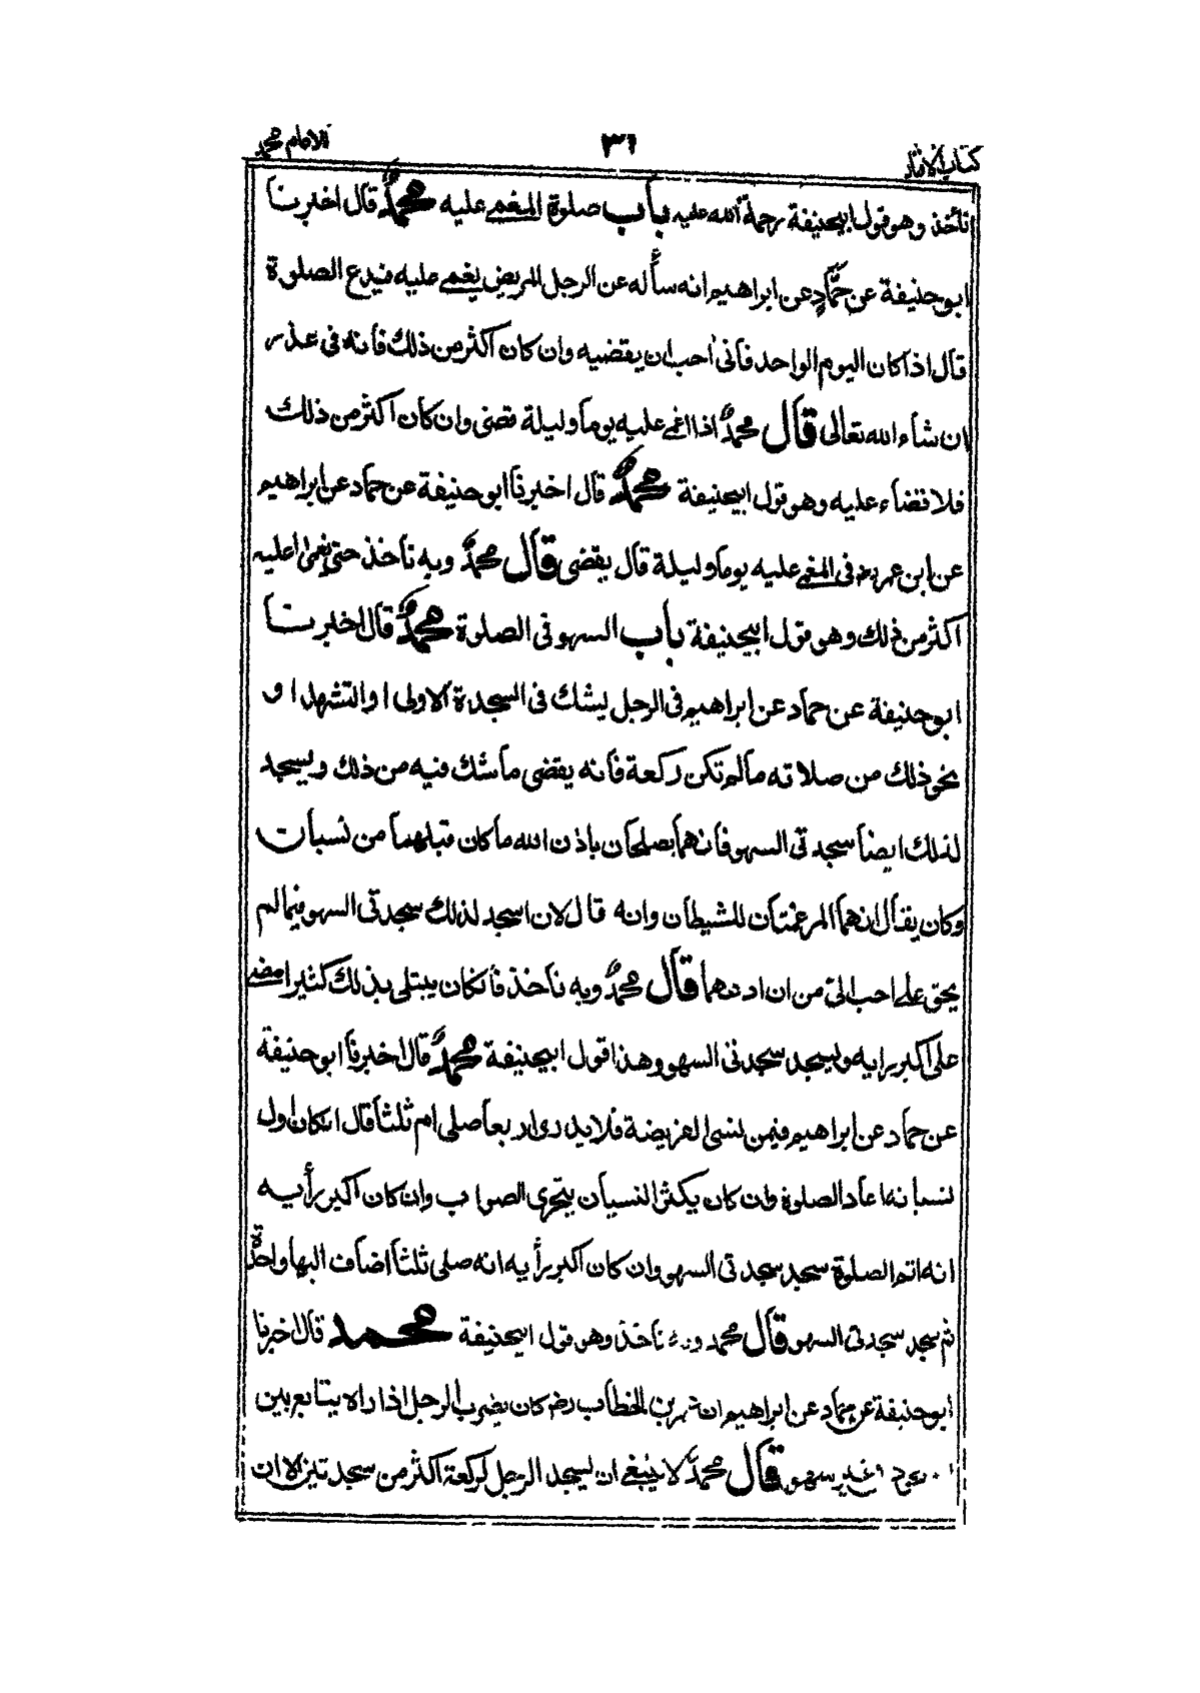 كتاب الاثار
٣١
للامام محمد
نأخذ وهو قول ابيحنيفة رحمة الله عليه باب صلوة المغمى عليه محمدٌ قال اخبرنا
ابو حنيفة عن حمَّادٍ عن ابراهيم انه سأله عن الرجل المريض يغمى عليه فيدع الصلوة
قال اذا كان اليوم الواحد فأنى احب ان يقضيه وان كان اكثر من ذلك فأنه فى عذر
ان شاء الله تعالى قال محمدٌ اذا اغمى عليه يوما وليلة قضى وان كان اكثر من ذلك
فلا قضاء عليه وهو قول ابيحنيفة محمدٌ قال اخبرنا ابو حنيفة عن حماد عن ابراهيم
عن ابن عمر رض فى المغمى عليه يوما وليلة قال يقضى قال محمدٌ وبه نأخذ حتى يغمى عليه
اكثر من ذلك وهو قول ابيحنيفة باب السهو فى الصلوة محمدٌ قال اخبرنا
ابو حنيفة عن حماد عن ابراهيم فى الرجل يشك فى السجدة الاولى او التشهد او
نحو ذلك من صلاته مالم تكن ركعة فأنه يقضى ما شك فيه من ذلك ويسجد
لذلك ايضا سجدتى السهو فأنهما يصلحان باذن الله ما كان قبلهما من نسيان
وكان يقال انهما المرغمتان للشيطان وانه قال لان اسجد لذلك سجدتى السهو فيما لم
يحق على احب الى من ان ادعهما قال محمدٌ وبه نأخذ فأنكان يبتلى بذلك كثيرا مضى
على اكبر رايه ويسجد سجدتى السهو وهذا قول ابيحنيفة محمدٌ قال اخبرنا ابو حنيفة
عن حماد عن ابراهيم فيمن نسى الفريضة فلا يدرى اربعا صلى ام ثلثا قال انكان اول
نسيانه اعاد الصلوة وان كان يكثر النسيان يتحرى الصواب وان كان اكبر رأيه
انه اتم الصلوة سجد سجدتى السهو وان كان اكبر رأيه انه صلى ثلثا اضاف اليها واحدة
ثم سجد سجدتى السهو قال محمد وبه نأخذ وهو قول ابيحنيفة محمد قال اخبرنا
ابو حنيفة عن حماد عن ابراهيم ان عمر بن الخطاب رض كان يضرب الرجل اذا راه يتابع بين
غير سهو قال محمدٌ لا ينبغى ان يسجد الرجل لركعة اكثر من سجدتين الا ان